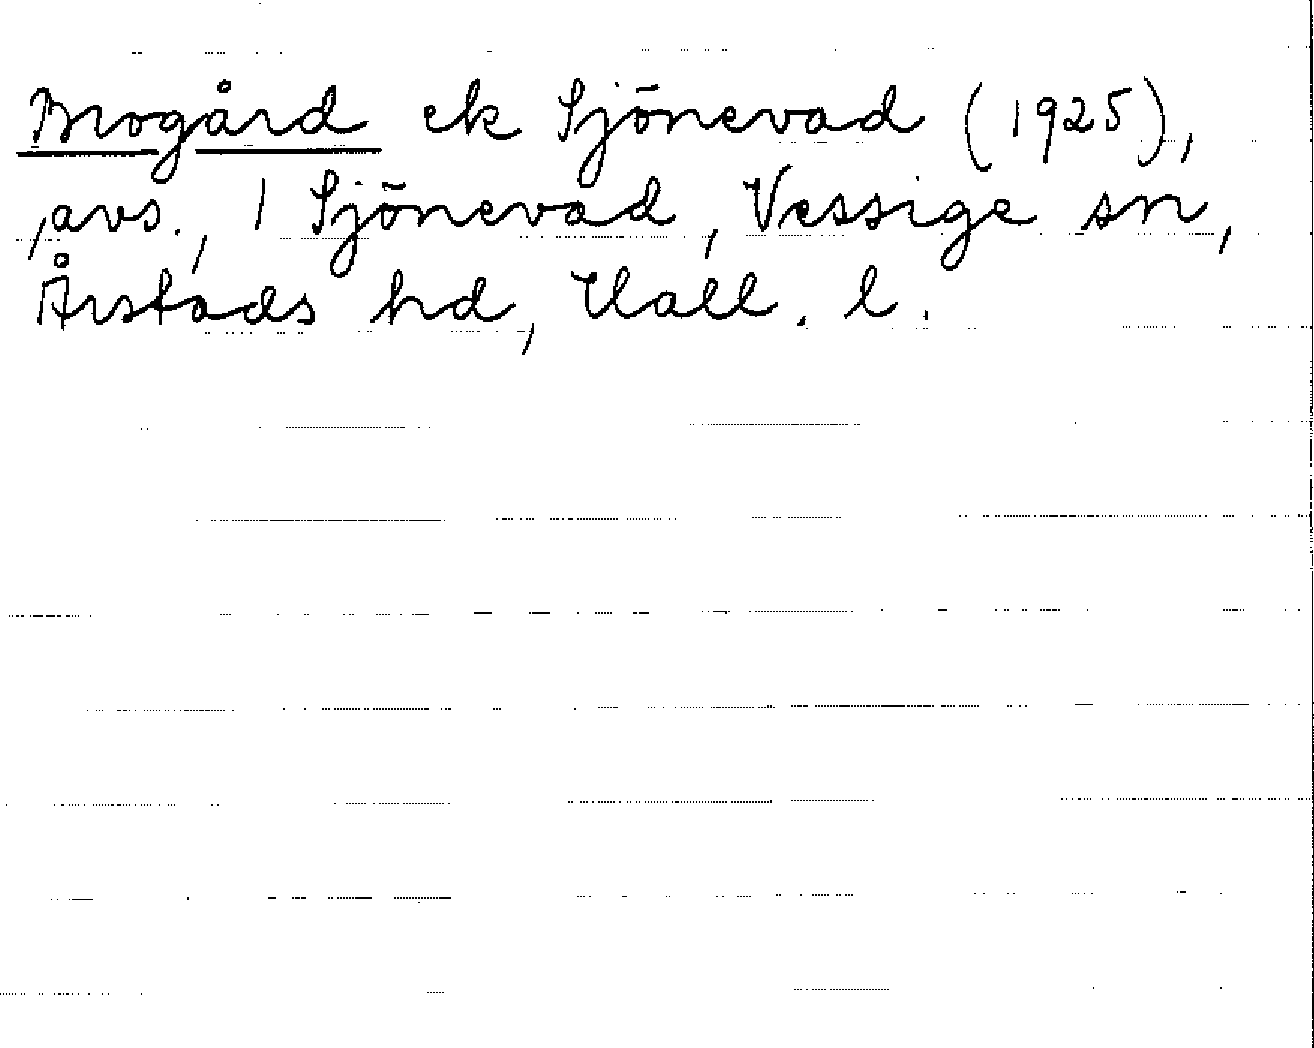 Mogård ek Sjönevad (1925),
, avs., 1 Sjönevad, Vessige sn,
Årstads hd, Hall. l.